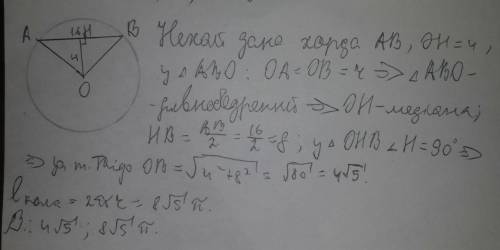 A 16 H B
4
O
Нехай дана хорда AB, OH=4,
у △ABO: OA=OB=r ⇒ △ABO-
-рівнобедренний ⇒ OH-медіана;
HB = AB/2 = 16/2 = 8; у △OHB ∠H=90° ⇒
⇒ за т. Піфагора OB = √4²+8² = √80 = 4√5.
l кола = 2πr = 8√5 π.
В.: 4√5; 8√5 π.